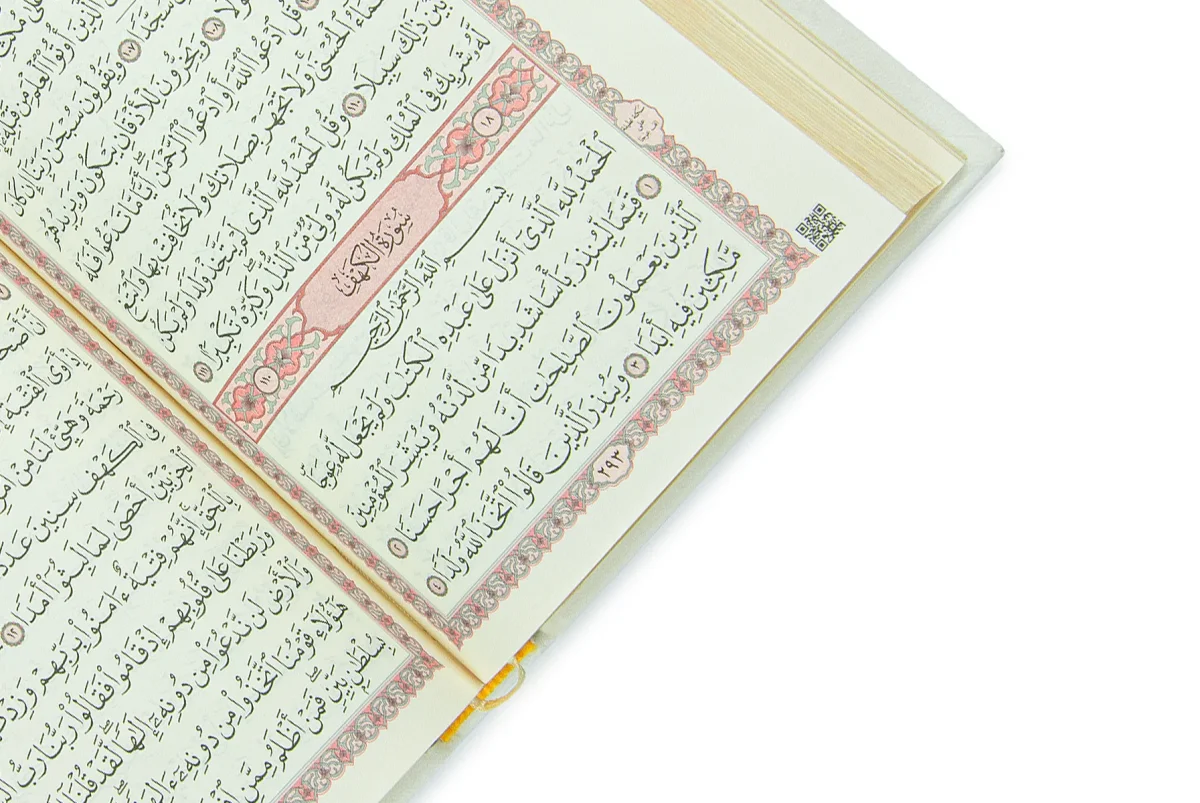 ٱلَّذِينَ أُوتُوا۟ ٱلْعِلْمَ مِن قَبْلِهِۦٓ
سُجَّدًا ١٠٧ وَيَقُولُونَ سُبْحَٰنَ رَبِّنَآ إِن كَانَ
١٠٨ وَيَخِرُّونَ لِلْأَذْقَانِ يَبْكُونَ وَيَزِيدُهُمْ
قُلِ ٱدْعُوا۟ ٱللَّهَ أَوِ ٱدْعُوا۟ ٱلرَّحْمَٰنَ أَيًّا مَّا تَدْعُوا۟ فَلَهُ
ٱلْحُسْنَىٰ وَلَا تَجْهَرْ بِصَلَاتِكَ وَلَا تُخَافِتْ بِهَا وَٱبْتَغِ
بَيْنَ ذَٰلِكَ سَبِيلًا ١١٠ وَقُلِ ٱلْحَمْدُ لِلَّهِ ٱلَّذِى لَمْ يَتَّخِذْ وَلَدًا وَلَمْ يَكُن
لَّهُۥ شَرِيكٌ فِى ٱلْمُلْكِ وَلَمْ يَكُن لَّهُۥ وَلِىٌّ مِّنَ ٱلذُّلِّ وَكَبِّرْهُ تَكْبِيرًۢا ١١١
١٨ سُورَةُ الكَهْفِ ١١٠
بِسْمِ ٱللَّهِ ٱلرَّحْمَٰنِ ٱلرَّحِيمِ
ٱلْحَمْدُ لِلَّهِ ٱلَّذِىٓ أَنزَلَ عَلَىٰ عَبْدِهِ ٱلْكِتَٰبَ وَلَمْ يَجْعَل لَّهُۥ عِوَجَا
١ قَيِّمًا لِّيُنذِرَ بَأْسًا شَدِيدًا مِّن لَّدُنْهُ وَيُبَشِّرَ ٱلْمُؤْمِنِينَ
ٱلَّذِينَ يَعْمَلُونَ ٱلصَّٰلِحَٰتِ أَنَّ لَهُمْ أَجْرًا حَسَنًا ٢
مَّٰكِثِينَ فِيهِ أَبَدًا ٣ وَيُنذِرَ ٱلَّذِينَ قَالُوا۟ ٱتَّخَذَ ٱللَّهُ وَلَدًا ٤
٢٩٣
إِذْ أَوَى ٱلْفِتْيَةُ
رَحْمَةً وَهَيِّئْ لَنَا مِنْ
فِى ٱلْكَهْفِ سِنِينَ
ٱلْحِزْبَيْنِ أَحْصَىٰ لِمَا لَبِثُوٓا۟ أَمَدًا ١٢
بِٱلْحَقِّ إِنَّهُمْ فِتْيَةٌ ءَامَنُوا۟ بِرَبِّهِمْ
وَرَبَطْنَا عَلَىٰ قُلُوبِهِمْ إِذْ قَامُوا۟ فَقَالُوا۟ رَبُّنَا رَبُّ
وَٱلْأَرْضِ لَن نَّدْعُوَا۟ مِن دُونِهِۦٓ إِلَٰهًا لَّقَدْ قُلْنَآ
هَٰٓؤُلَآءِ قَوْمُنَا ٱتَّخَذُوا۟ مِن دُونِهِۦٓ
بِسُلْطَٰنٍۭ بَيِّنٍ فَمَنْ أَظْلَمُ مِمَّنِ